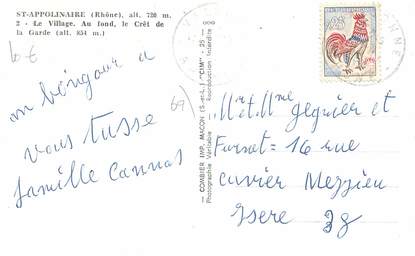 ST-APPOLINAIRE (Rhône), alt. 720 m.
2 - Le Village. Au fond, le Crêt de
la Garde (alt. 854 m.)
6€
69
un bongour a
vous tusse
famille Cannas
COMBIER IMP. MACON (S.-et-L.) "CIM" - 25 -
Photographie Véritable - Reproduction Interdite
0,25
Mr et Mme gegnier et
Farnet = 16 rue
cuvier Meyzieu
Isere 38